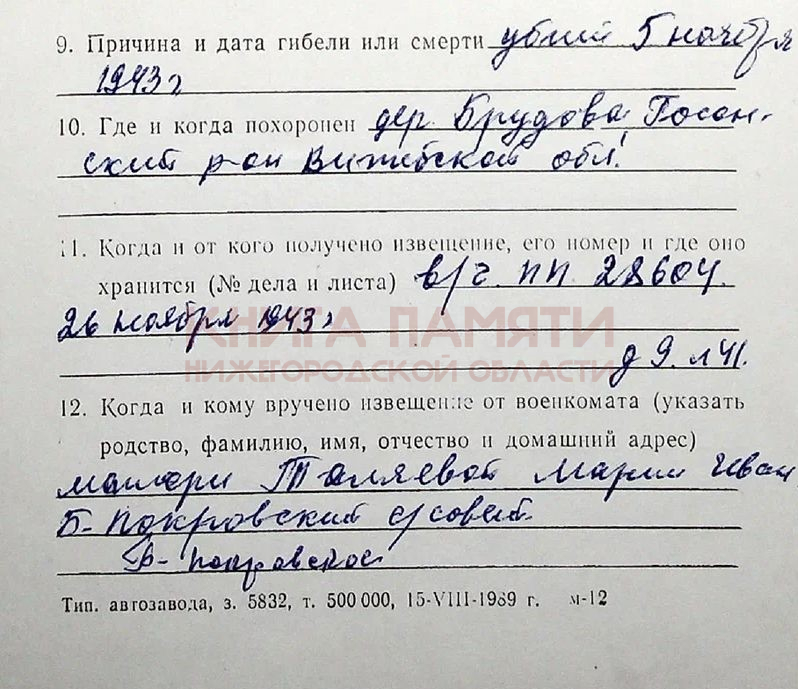 9. Причина и дата гибели или смерти убит 5 ноября
1943 г
10. Где и когда похоронен дер. Брудова
ский р-он Витебской обл.
11. Когда и от кого получено извещение, его номер и где оно
хранится (№ дела и листа) в/ч пп 28604.
26 ноября 1943 г
КНИГА ПАМЯТИ
НИЖЕГОРОДСКОЙ ОБЛАСТИ
д 9. л 41.
12. Когда и кому вручено извещение от военкомата (указать
родство, фамилию, имя, отчество и домашний адрес)
матери Таляевой Марии Иван
Б-Покровский с/совет
Б-Покровское
Тип. автозавода, з. 5832, т. 500 000, 15-VIII-1989 г. м-12